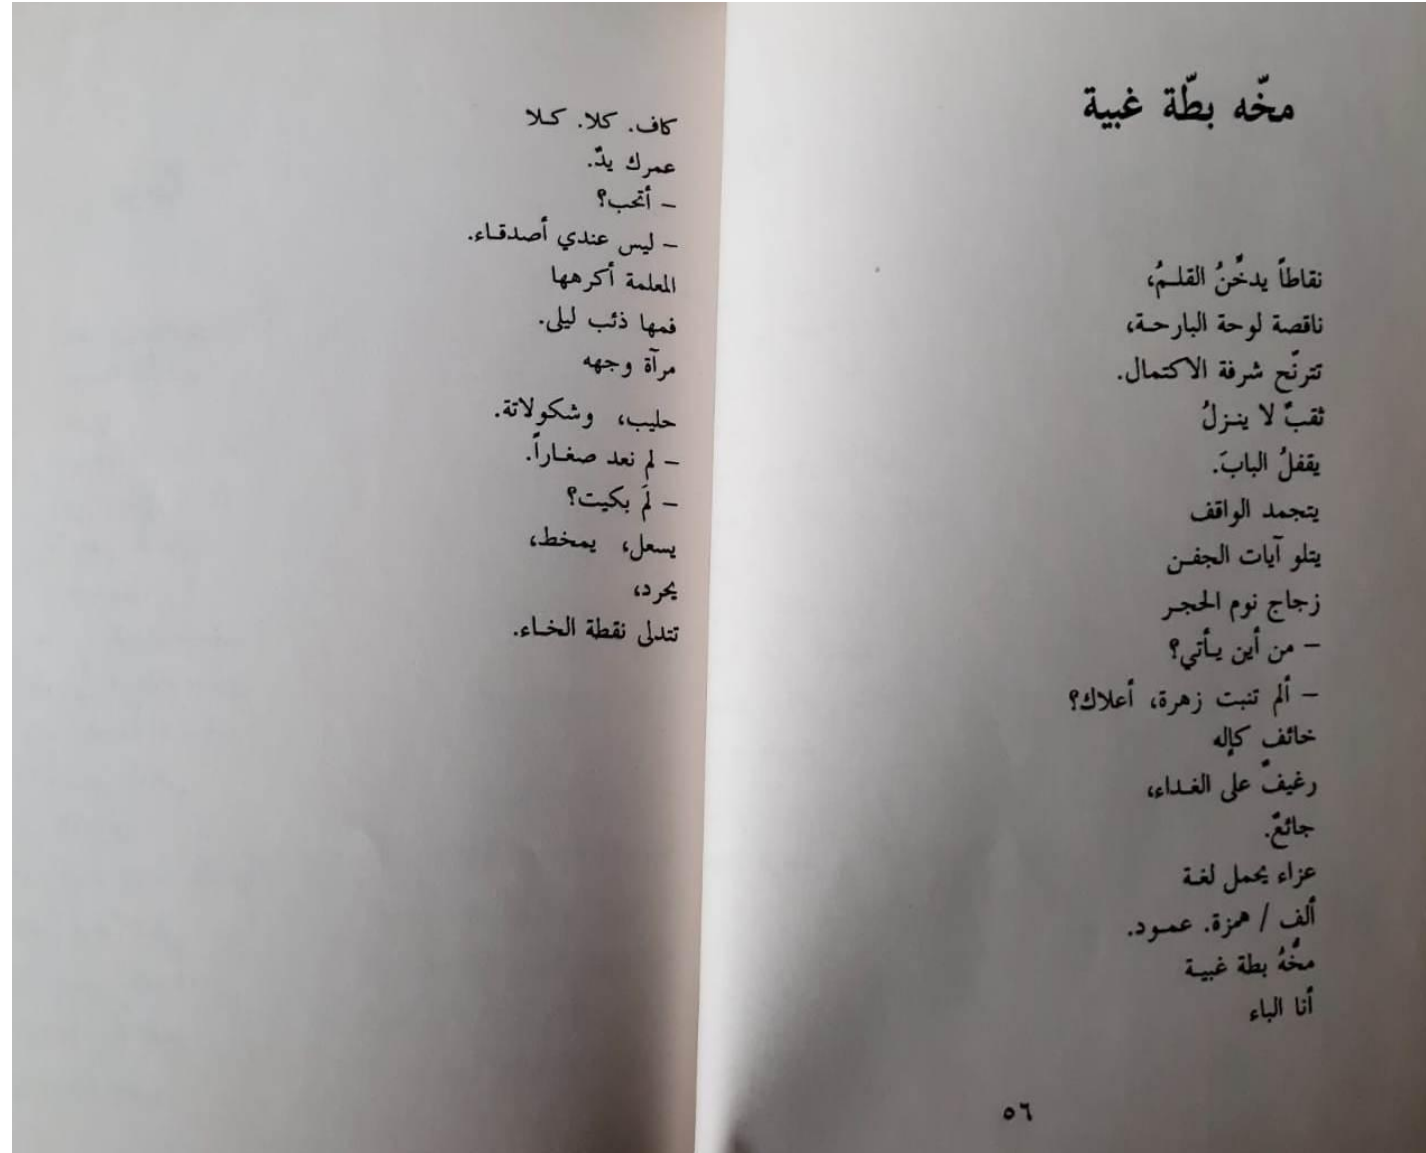 مخّه بطّة غبية
نقاطاً يدخِّنُ القلمُ،
ناقصة لوحة البارحة،
تترنّح شرفة الاكتمال.
ثقبٌ لا ينزلُ
يقفلُ البابَ.
يتجمد الواقف
يتلو آيات الجفن
زجاج نوم الحجر
– من أين يأتي؟
– ألم تنبت زهرة، أعلاك؟
خائف كإله
رغيفٌ على الغداء،
جائعٌ.
عزاء يحمل لغة
ألف / همزة. عمود.
مخُّهُ بطة غبية
أنا الباء
٥٦
كاف. كلا. كلا
عمرك يدٌ.
– أتحب؟
– ليس عندي أصدقاء.
المعلمة أكرهها
فمها ذئب ليلى.
مرآة وجهه
حليب، وشكولاتة.
– لم نعد صغاراً.
– لمَ بكيت؟
يسعل، يمخط،
يحرد،
تتدلى نقطة الخاء.